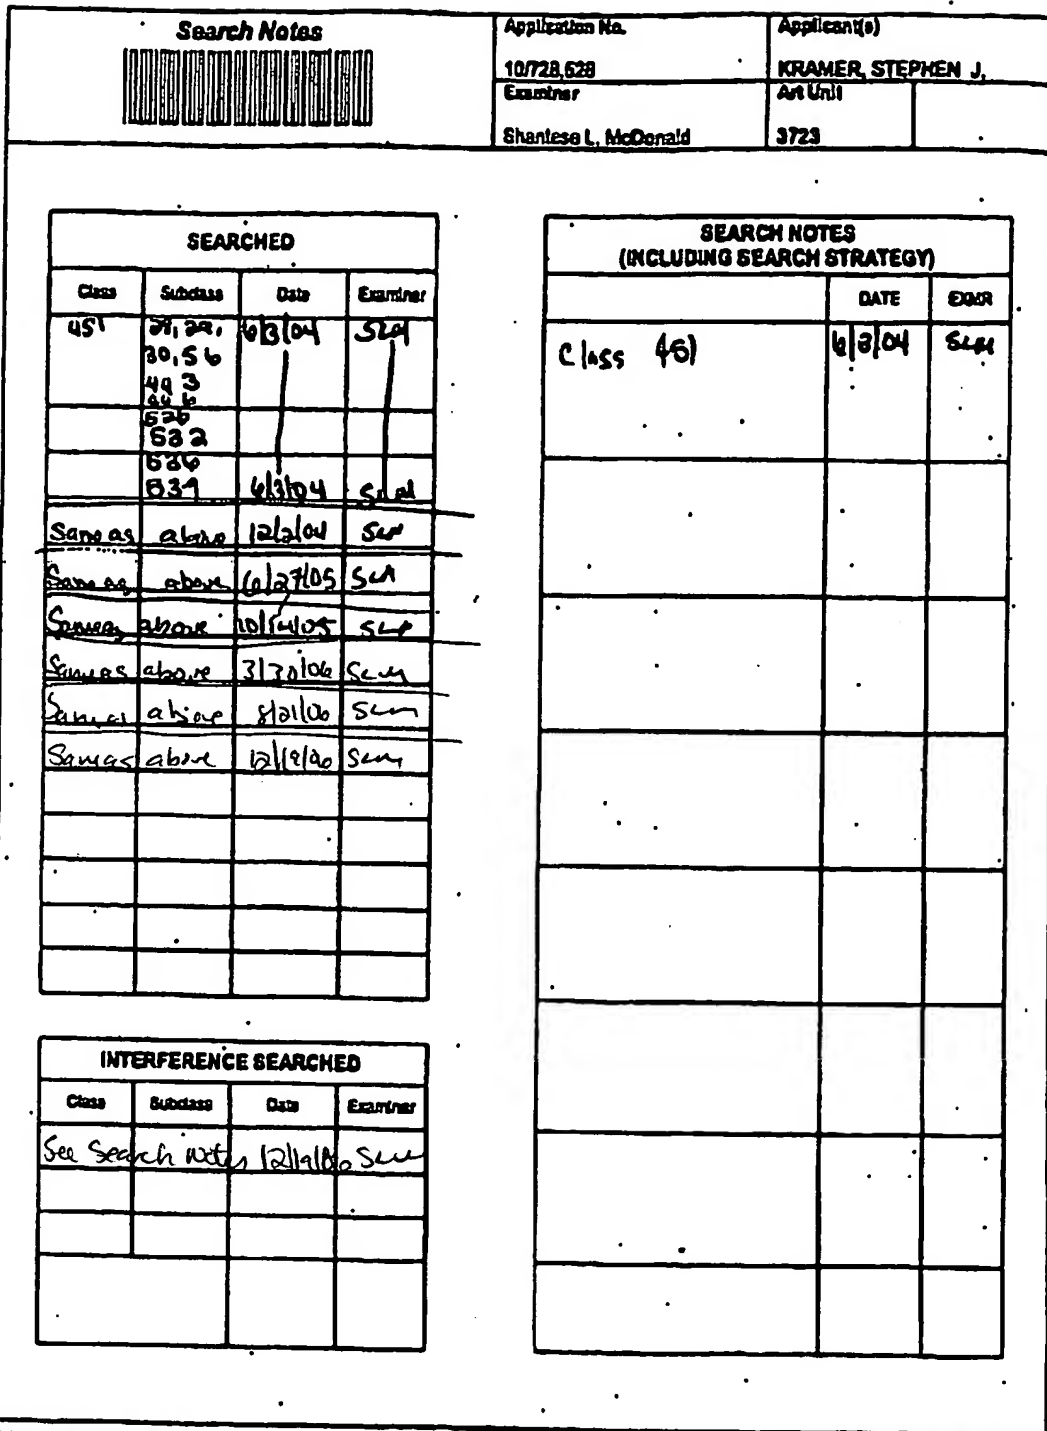 Search Notes
Application No.
Applicant(s)
10/728,628
KRAMER, STEPHEN J.
Examiner
Art Unit
Shantese L. McDonald
3723
SEARCHED
Class Subclass Date Examiner
451 28, 29, 6/3/04 SLM
30, 56
493
526
532
536
539 6/3/04 SLM
Same as above 12/2/04 SLM
Same as above 6/27/05 SLM
Same as above 10/14/05 SLM
Same as above 3/30/06 SLM
Same as above 8/21/06 SLM
Same as above 12/19/06 SLM
INTERFERENCE SEARCHED
Class Subclass Date Examiner
See Search Notes 12/19/06 SLM
SEARCH NOTES
(INCLUDING SEARCH STRATEGY)
DATE EXMR
Class 451 6/3/04 SLM